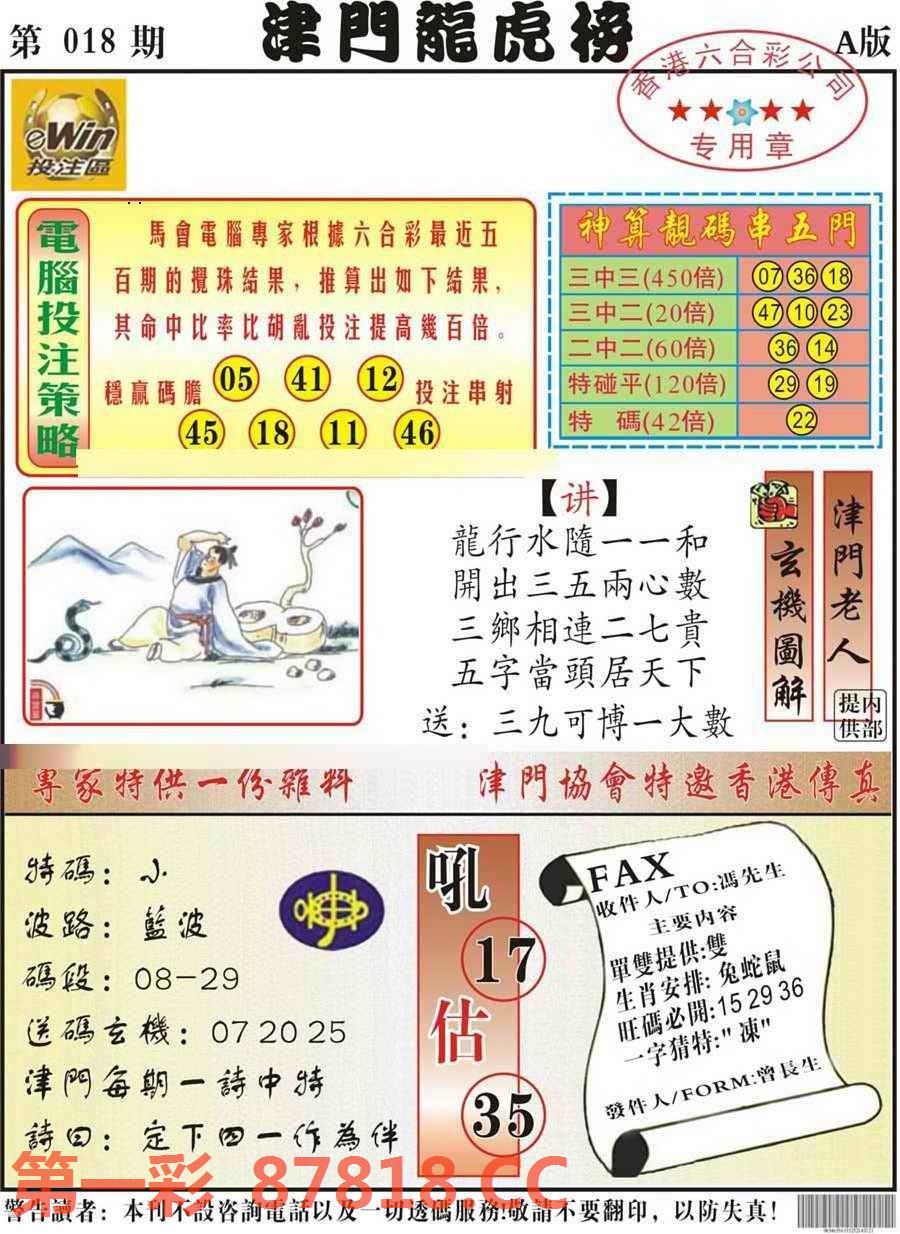 第 018 期
津門龍虎榜
A版
香港六合彩公司
专用章
eWin
投注區
電腦投注策略
馬會電腦專家根據六合彩最近五
百期的攪珠結果，推算出如下結果，
其命中比率比胡亂投注提高幾百倍。
穩贏碼膽 05 41 12 投注串射
45 18 11 46
神算靚碼串五門
三中三(450倍) 07 36 18
三中二(20倍) 47 10 23
二中二(60倍) 36 14
特碰平(120倍) 29 19
特 碼(42倍) 22
【讲】
龍行水隨一一和
開出三五兩心數
三鄉相連二七貴
五字當頭居天下
送：三九可博一大數
玄機圖解
津門老人
內部提供
專家特供一份雜料
津門協會特邀香港傳真
特碼：小
波路：藍波
碼段：08-29
送碼玄機：07 20 25
津門每期一詩中特
詩曰：定下四一作為伴
吼
17
估
35
FAX
收件人/TO:馮先生
主要內容
單雙提供:雙
生肖安排: 兔蛇鼠
旺碼必開:15 29 36
一字猜特:" 凍"
發件人/FORM:曾長生
第一彩 87818.CC
警告讀者：本刊不設咨詢電話以及一切透碼服務!敬請不要翻印，以防失真!